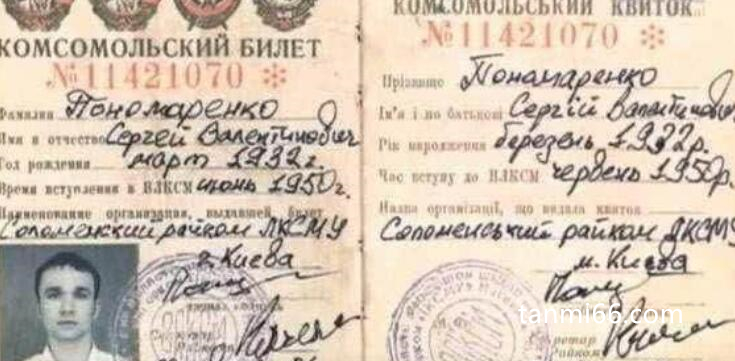 КОМСОМОЛЬСКИЙ БИЛЕТ
№11421070 *
Фамилия Пономаренко
Имя и отчество Сергей Валентинович
Год рождения март 1932 г.
Время вступления в ВЛКСМ июнь 1950 г.
Наименование организации, выдавшей билет
Соломенский райком ЛКСМУ
г. Киева
КОМСОМОЛЬСЬКИЙ КВИТОК
№11421070 *
Прізвище Пономаренко
Ім'я і по батькові Сергій Валентинович
Рік народження березень 1932 р.
Час вступу до ВЛКСМ червень 1950 р.
Назва організації, що видала квиток
Соломенський райком ЛКСМУ
м. Києва
tanmi66.com